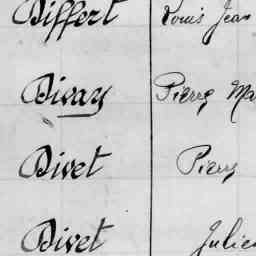 Differt Louis Jean
Divay Pierre Ma
Divet Pierre
Divet Julie